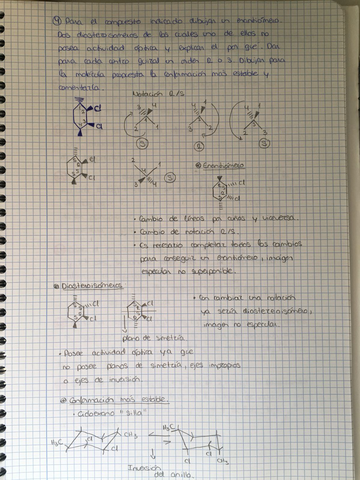 ④ Para el compuesto indicado dibujar un enantiómero.
Dos diastereoisómeros de los cuales uno de ellos no
posea actividad óptica y explicar el por qué. Dar
para cada centro quiral un orden R o S. Dibujar para
la molécula propuesta la conformación más estable y
comentarla.
Notación R/S
Cl
Cl
S
R
S
Cl
Cl
S
Enantiómero
Cl
Cl
• Cambio de líneas por cuñas y viceversa.
• Cambio de notación R/S.
• Es necesario completar todos los cambios
para conseguir un enantiómero, imagen
especular no superponible.
Diastereoisómeros
Cl
Cl
Cl
Cl
• Con cambiar una notación
ya sería diastereoisómero,
imagen no especular.
plano de simetría
• Posee actividad óptica ya que
no posee planos de simetría, ejes impropios
o ejes de inversión
Conformación más estable
• Ciclohexano "silla"
H₃C
Cl
Cl
CH₃
H₃C
Cl
Cl
CH₃
Inversión
del anillo.